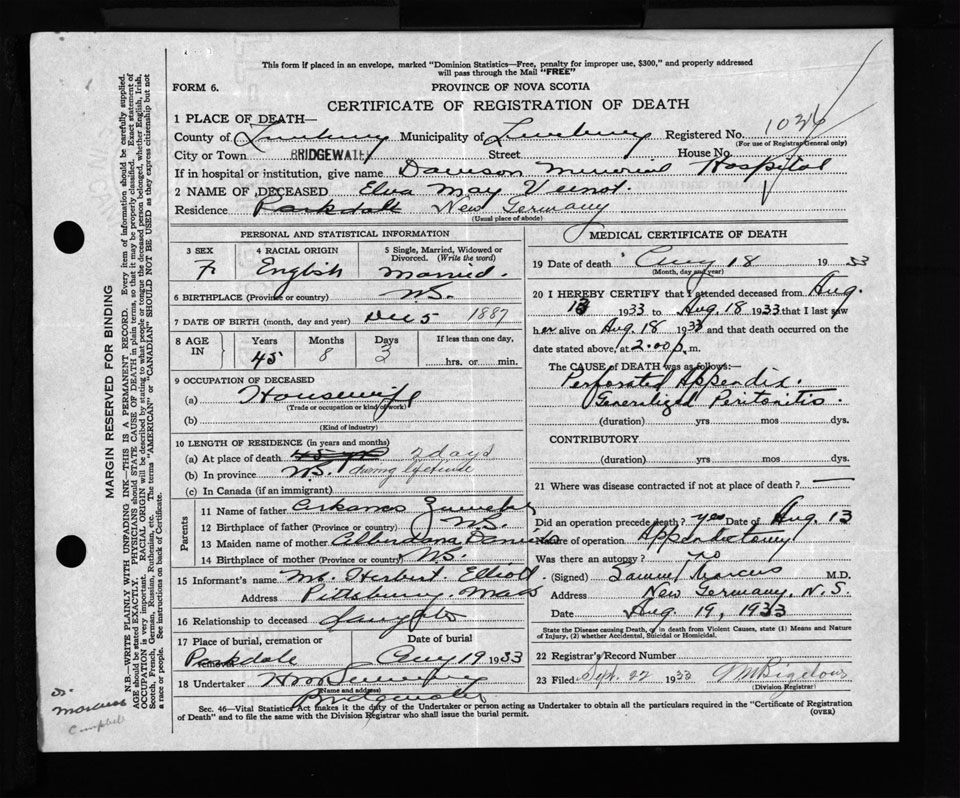 This form if placed in an envelope, marked "Dominion Statistics—Free, penalty for improper use, $300," and properly addressed
will pass through the Mail "FREE"
FORM 6. PROVINCE OF NOVA SCOTIA
CERTIFICATE OF REGISTRATION OF DEATH
1 PLACE OF DEATH—
County of Lunenburg Municipality of Lunenburg Registered No.
(For use of Registrar-General only)
City or Town BRIDGEWATER Street House No.
If in hospital or institution, give name Dawson Memorial Hospital
2 NAME OF DECEASED Elva May Veinot.
Residence Parkdale New Germany
(Usual place of abode)
PERSONAL AND STATISTICAL INFORMATION
3 SEX 4 RACIAL ORIGIN 5 Single, Married, Widowed or Divorced. (Write the word)
F English Married.
6 BIRTHPLACE (Province or country) N.S.
7 DATE OF BIRTH (month, day and year) Dec 5 1887
8 AGE IN Years Months Days If less than one day,
45 8 3 hrs. or min.
9 OCCUPATION OF DECEASED
(a) Housewife
(Trade or occupation or kind of work)
(b)
(Kind of industry)
10 LENGTH OF RESIDENCE (in years and months)
(a) At place of death 45 yrs 2 days
(b) In province N.S. during lifetime
(c) In Canada (if an immigrant)
Parents
11 Name of father Arkanas
12 Birthplace of father (Province or country) N.S.
13 Maiden name of mother Daniels
14 Birthplace of mother (Province or country) N.S.
15 Informant's name Mrs. Herbert Elliott.
Address Mass
16 Relationship to deceased daughter
17 Place of burial, cremation or Date of burial
Parkdale Aug 19 1933
18 Undertaker
(Name and address)
Bridgewater
MEDICAL CERTIFICATE OF DEATH
19 Date of death Aug 18 1933
(Month, day and year)
20 I HEREBY CERTIFY that I attended deceased from Aug.
13 1933 to Aug. 18 1933 that I last saw
her alive on Aug. 18 1933 and that death occurred on the
date stated above, at 2.00 p.m.
The CAUSE OF DEATH was as follows:—
Perforated Appendix.
Generalized Peritonitis.
(duration) yrs mos. dys.
CONTRIBUTORY
(duration) yrs mos. dys.
21 Where was disease contracted if not at place of death? —
Did an operation precede death? yes Date of Aug. 13
Nature of operation Appendectomy
Was there an autopsy? no
(Signed) Samuel Marcus M.D.
Address New Germany, N.S.
Date Aug. 19, 1933
State the Disease causing Death, or in death from Violent Causes, state (1) Means and Nature
of Injury, (2) whether Accidental, Suicidal or Homicidal.
22 Registrar's Record Number
23 Filed Sept. 22 1933
(Division Registrar)
Sec. 46—Vital Statistics Act makes it the duty of the Undertaker or person acting as Undertaker to obtain all the particulars required in the "Certificate of Registration
of Death" and to file the same with the Division Registrar who shall issue the burial permit. (OVER)
MARGIN RESERVED FOR BINDING
N.B.—WRITE PLAINLY WITH UNFADING INK—THIS IS A PERMANENT RECORD. Every item of information should be carefully supplied.
AGE should be stated EXACTLY. PHYSICIANS should STATE CAUSE OF DEATH in plain terms, so that it may be properly classified. Exact statement of
OCCUPATION is very important. RACIAL ORIGIN will be described by stating to what people or tongue the deceased person belonged, whether English, Irish,
Scotch, French, German, Russian, Ruthenian, etc. The terms "AMERICAN" or "CANADIAN" SHOULD NOT BE USED as they express citizenship but not
a race or people. See instructions on back of Certificate.
Dr. Marcus
Campbell